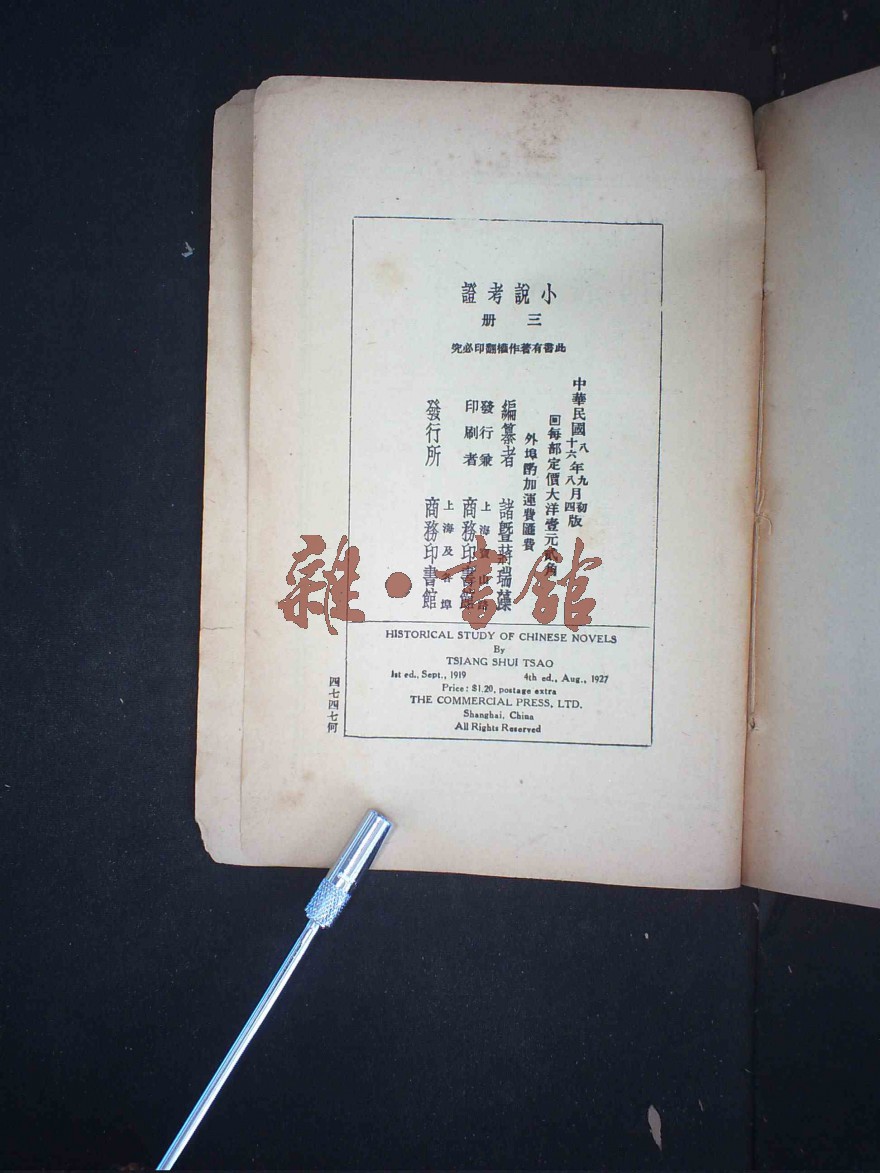 小說考證
三册
此書有著作權翻印必究
中華民國八年九月初版
十六年八月四版
回每部定價大洋壹元貳角
外埠酌加運費匯費
編纂者 諸暨蔣瑞藻
發行兼印刷者 上海寶山路 商務印書館
發行所 上海及各埠 商務印書館
雜·書館
HISTORICAL STUDY OF CHINESE NOVELS
By
TSIANG SHUI TSAO
1st ed., Sept., 1919 4th ed., Aug., 1927
Price: $1.20, postage extra
THE COMMERCIAL PRESS, LTD.
Shanghai, China
All Rights Reserved
四七四七何